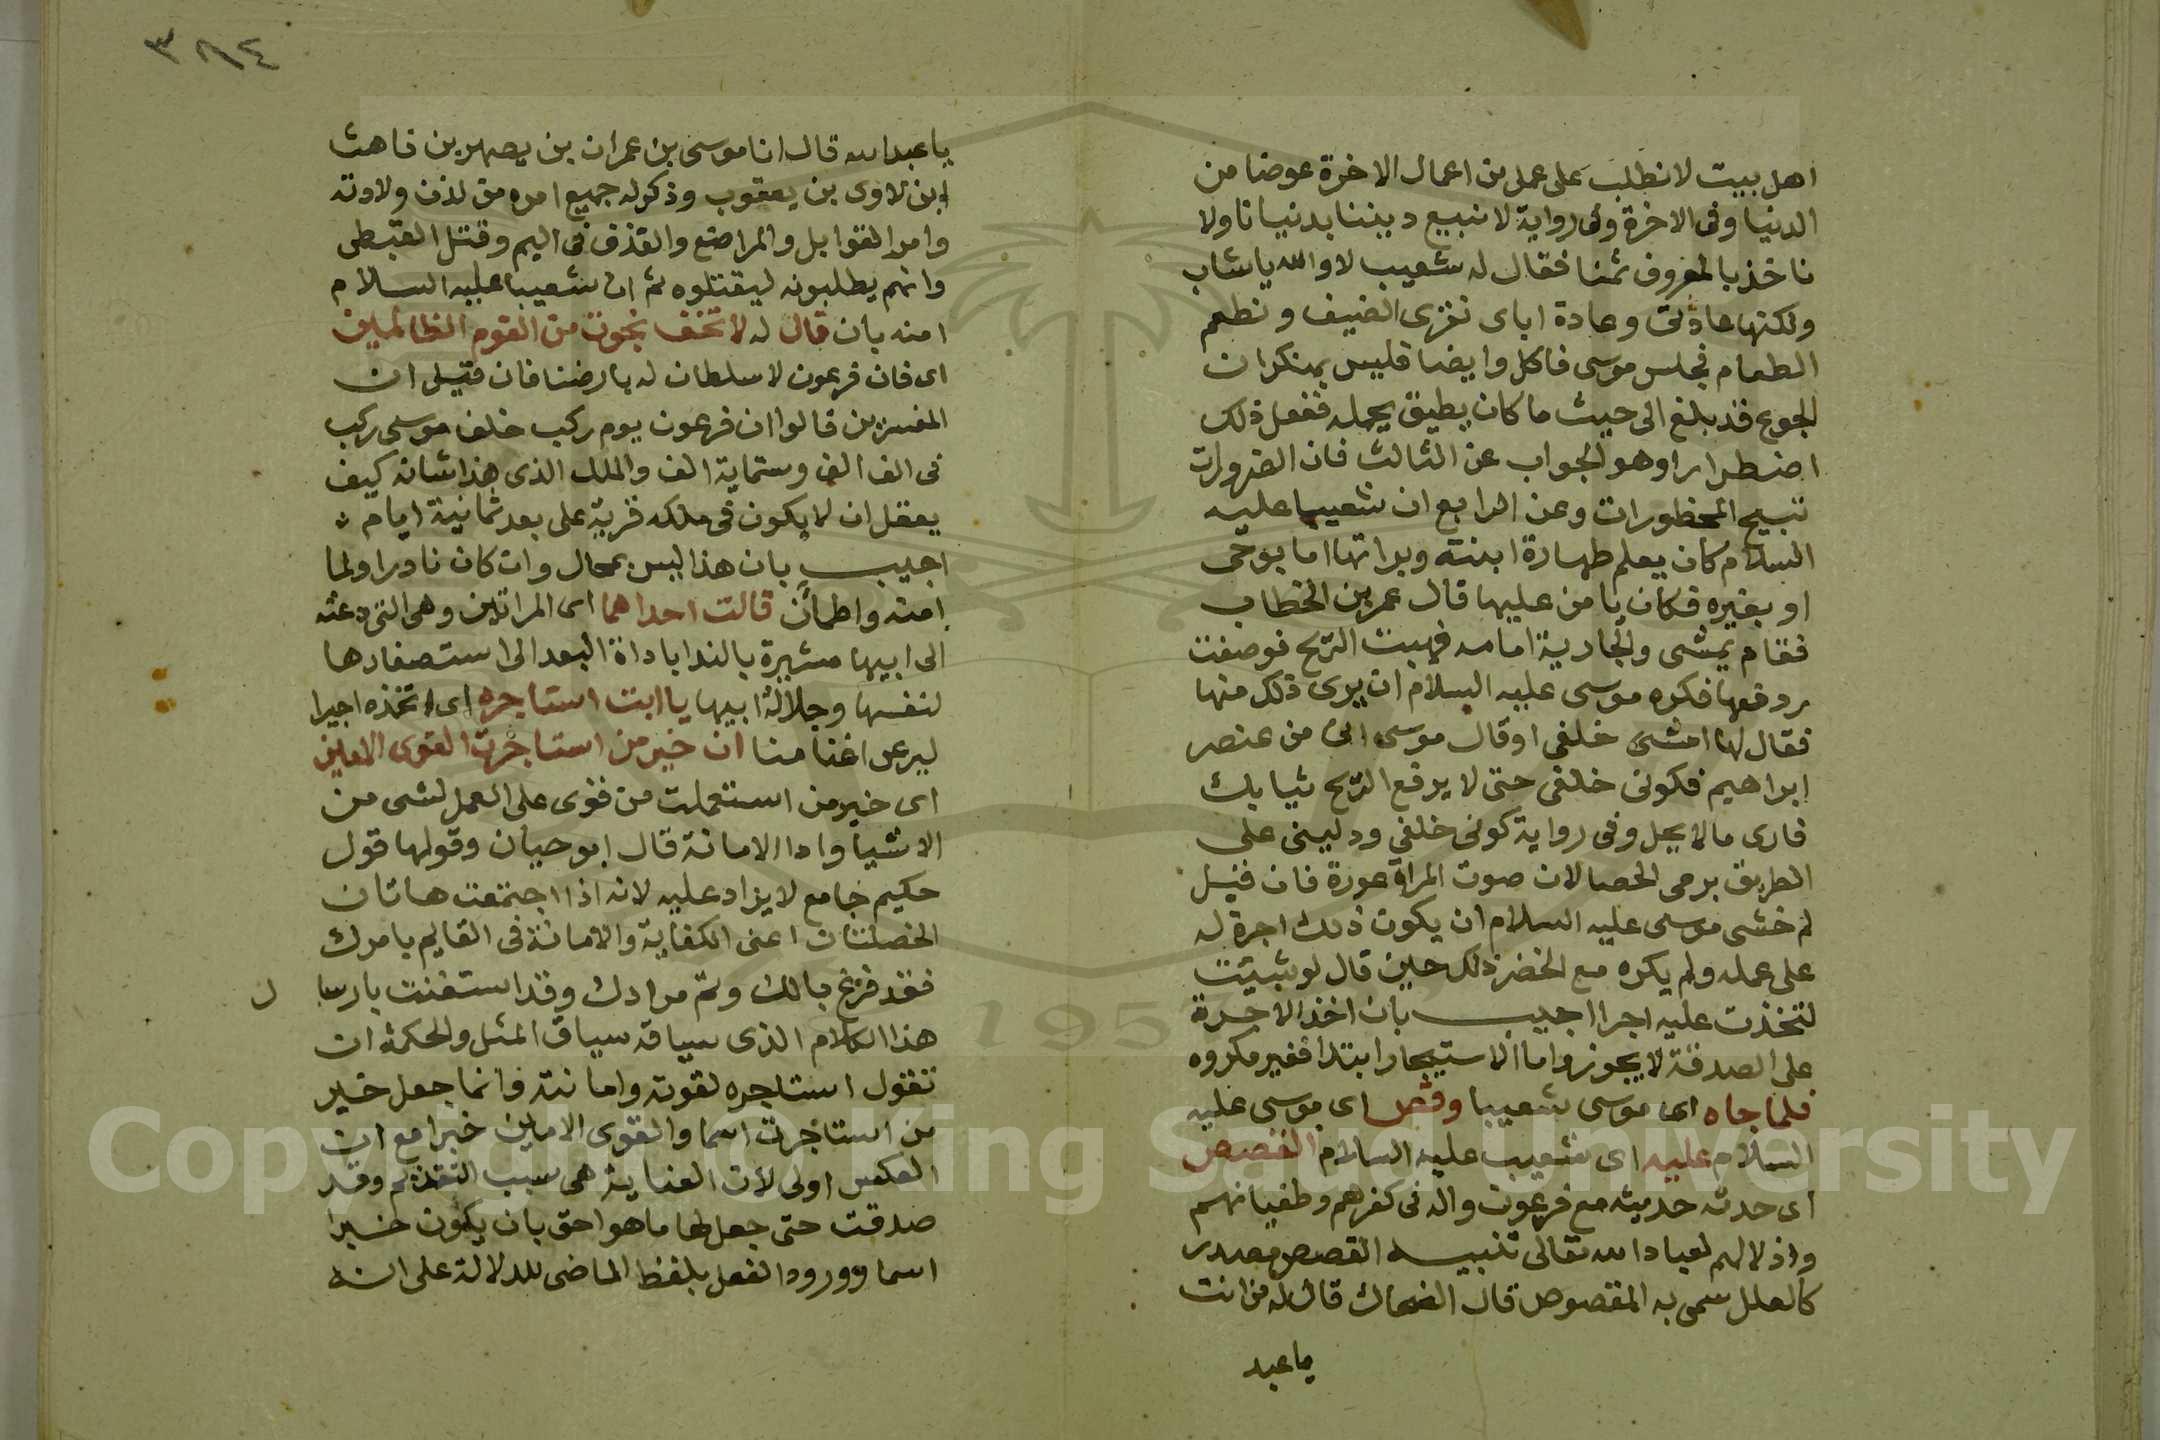 اهل بيت لا نطلب على عمل من اعمال الاخرة عوضا من
الدنيا وفى الاخرة وفى رواية لا نبيع ديننا بدنيانا ولا
ناخذ بالمعروف ثمنا فقال له شعيب لا والله يا شاب
ولكنها عادتى وعادة اباى نقرى الضيف ونطعم
الطعام فجلس موسى فاكل وايضا فليس بمنكر ان
الجوع قد بلغ الى حيث ما كان يطيق يحمله ففعل ذلك
اضطرارا وهو الجواب عن الثالث فان الضرورات
تبيح المحظورات وعن الرابع ان شعيبا عليه
السلام كان يعلم طهارة ابنته وبراتها اما بوحى
او بغيره فكان يا من عليها قال عمر بن الخطاب
فقام يمشى والجارية امامه فهبت الريح فوصفت
ردفها فكره موسى عليه السلام ان يرى ذلك منها
فقال لها امشى خلفى او قال موسى انى من عنصر
ابراهيم فكونى خلفى حتى لا يرفع الريح ثيابك
فارى ما لا يحل وفى رواية كونى خلفى ودلينى على
الطريق برمى الحصا لان صوت المراة عورة فان قيل
لم خشى موسى عليه السلام ان يكون ذلك اجرة له
على عمله ولم يكره مع الخضر ذلك حين قال لو شيئت
لتخذت عليه اجرا اجيب بان اخذ الاجرة
على الصدقة لا يجوز واما الاستيجار ابتدا فغير مكروه
فلما جاه اى موسى شعيبا وقص اى موسى عليه
السلام عليه اى شعيب عليه السلام القصص
اى حدثه حديثه مع فرعون واله فى كفرهم وطغيانهم
واذلالهم لعباد الله تعالى تنبيه القصص مصدر
كالعلل سمى به المقصوص قال الضحاك قال له من انت
يا عبد
٣٨٤
يا عبد الله قال انا موسى بن عمران بن يصهر بن قاهث
ابن لاوى بن يعقوب وذكر له جميع امره من لدن ولادته
وامر القوابل والمراضع والقذف فى اليم وقتل القبطى
وانهم يطلبونه ليقتلوه ثم ان شعيبا عليه السلام
امنه بان قال له لا تخف نجوت من القوم الظالمين
اى فان فرعون لا سلطان له بارضنا فان قيل ان
المفسرين قالوا ان فرعون يوم ركب خلف موسى ركب
فى الف الف وستماية الف والملك الذى هذا شانه كيف
يعقل ان لا يكون فى ملكه قرية على بعد ثمانية ايام
اجيب بان هذا ليس بمحال وان كان نادرا ولما
امنه واطمأن قالت احداهما اى المراتين وهى التى دعته
الى ابيها مشيرة بالندا باداة البعد الى استصغارها
لنفسها وجلالة ابيها يا ابت استاجره اى اتخذه اجيرا
ليرعى اغنامنا ان خير من استاجرت القوى الامين
اى خير من استعملت من قوى على العمل لشى من
الاشيا وادا الامانة قال ابو حيان وقولها قول
حكيم جامع لا يزاد عليه لانه اذا اجتمعت هاتان
الخصلتان اعنى الكفاية والامانة فى القايم بامرك
فقد فرغ بالك وتم مرادك وقد استغنت بارسا ل
هذا الكلام الذى سياقه سياق المثل والحكمة ان
تقول استاجره لقوته وامانته وانما جعل خير
من استاجرت اسما والقوى الامين خبرا مع ان
العكس اولى لان العناية هى سبب التقديم وقد
صدقت حتى جعل لها ما هو احق بان يكون خبرا
اسما وورود الفعل بلفظ الماضى للدلالة على انه
Copyright © King Saud University
1957